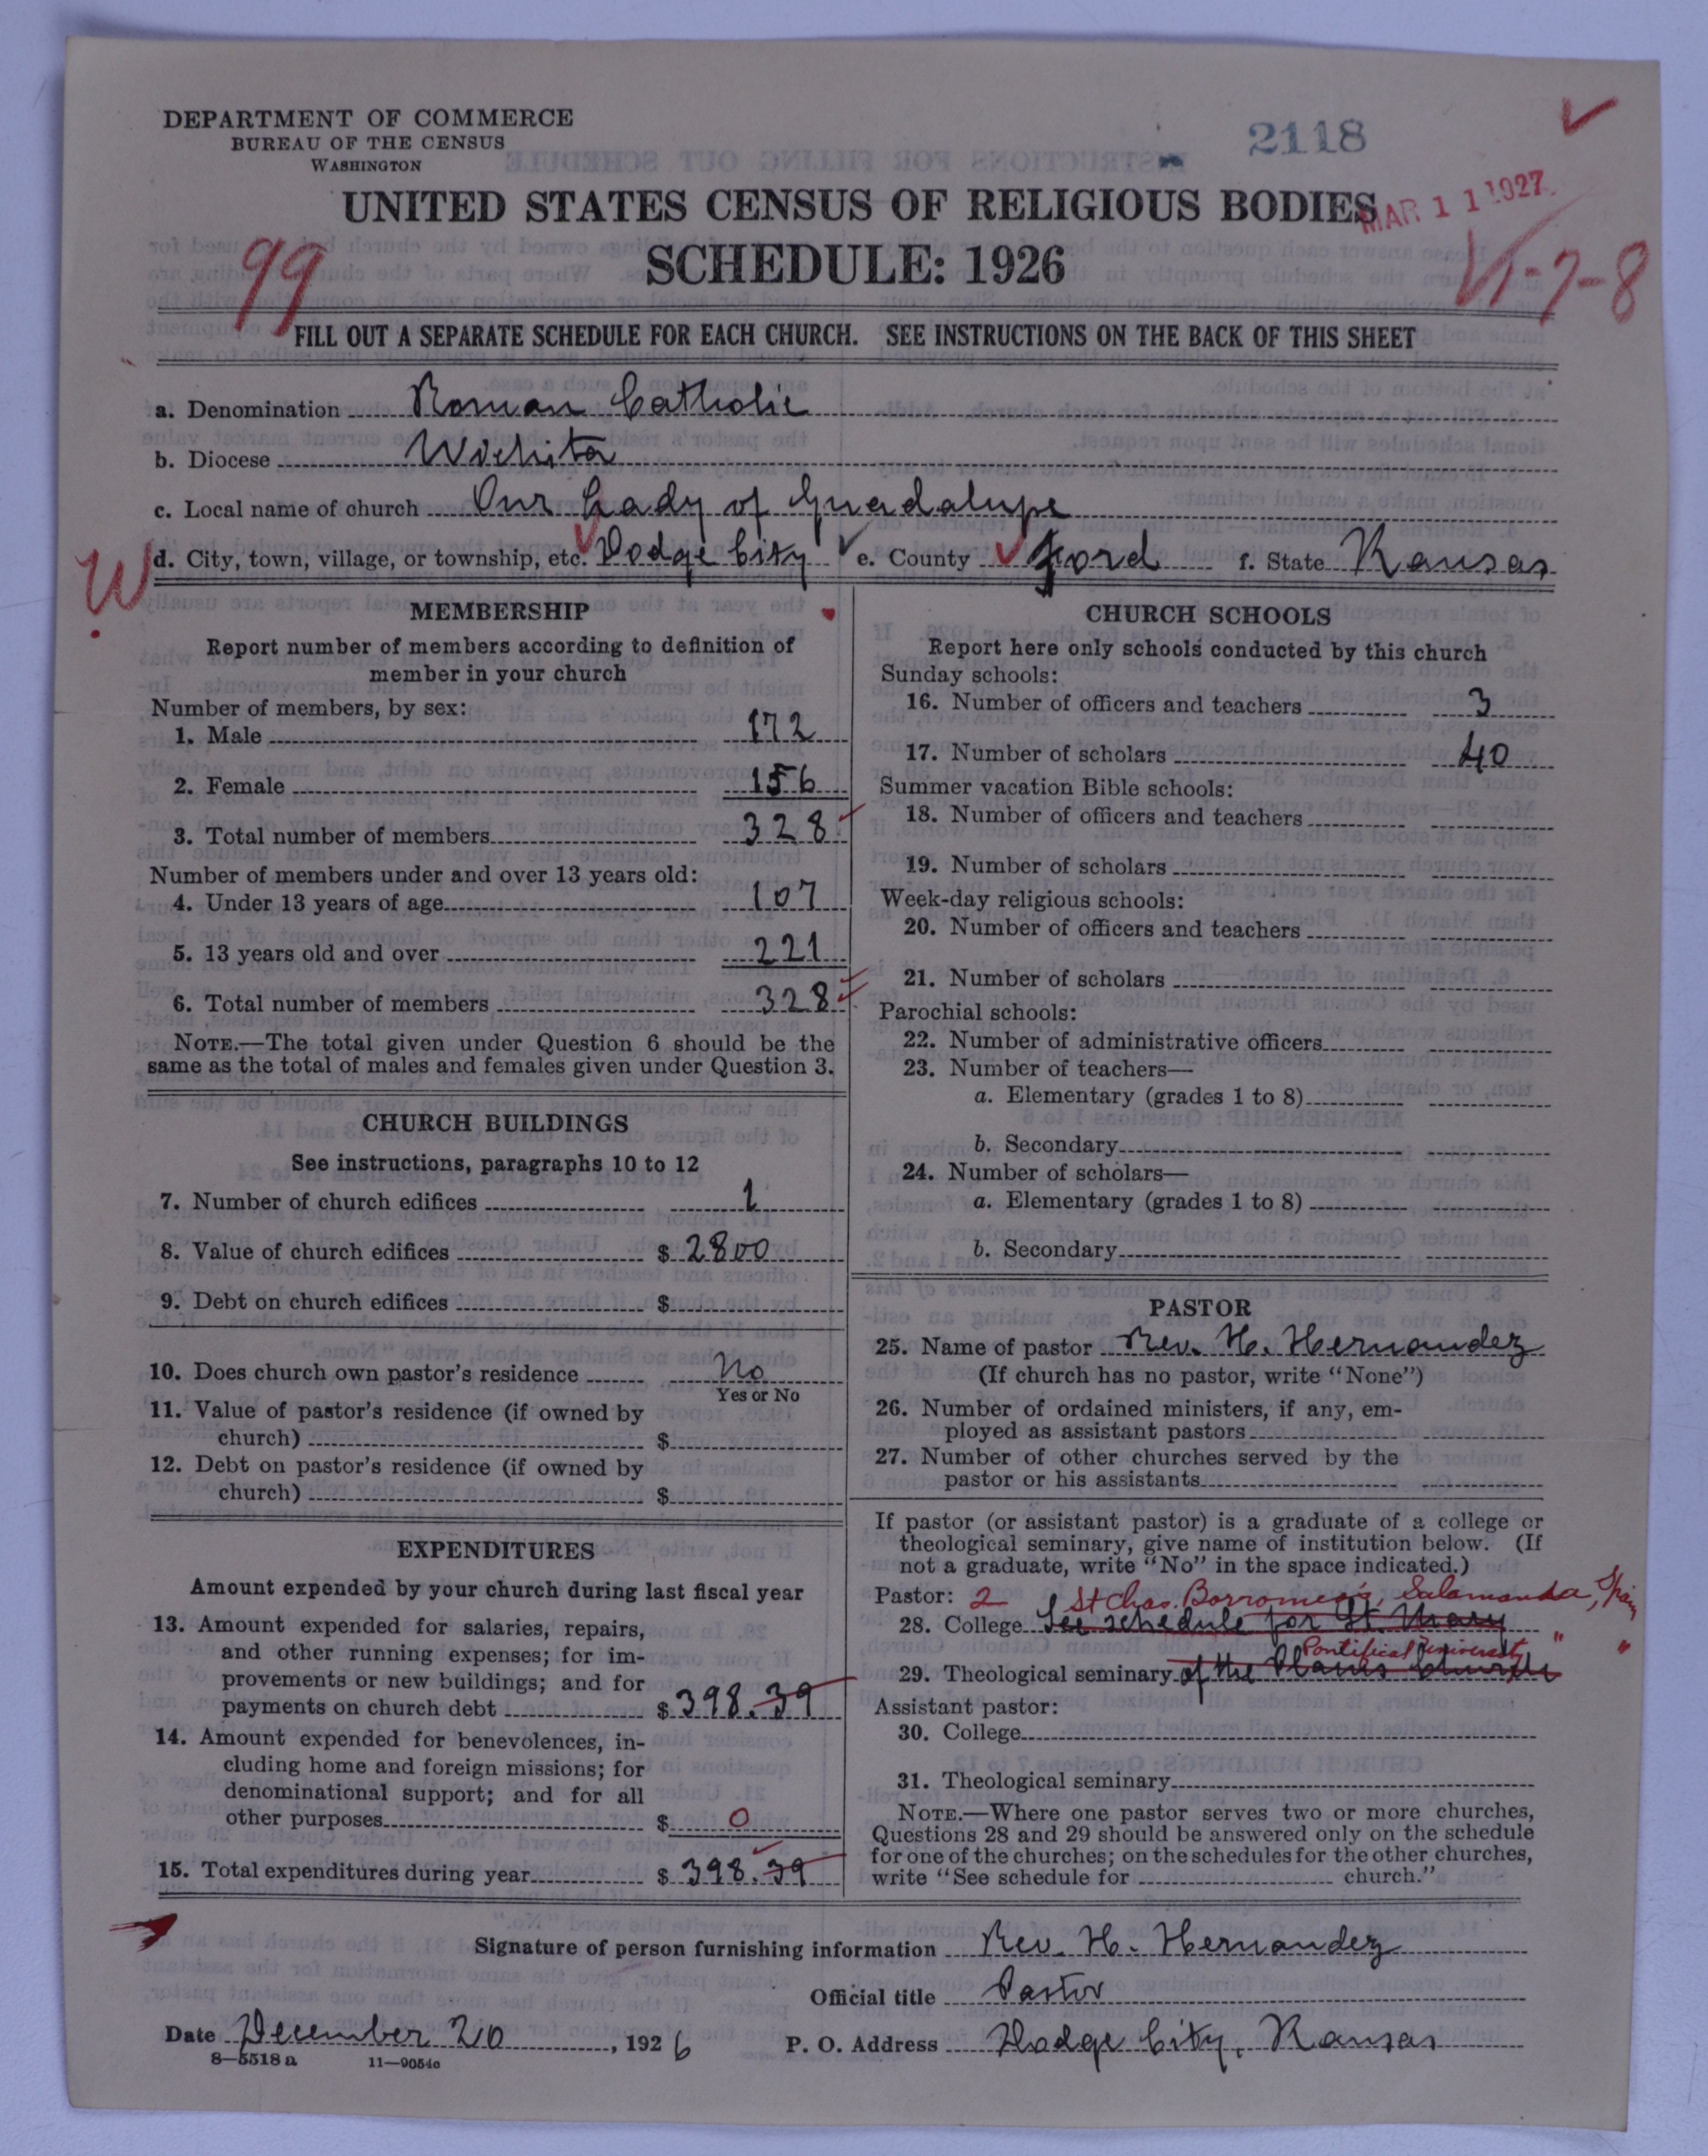 DEPARTMENT OF COMMERCE
BUREAU OF THE CENSUS
WASHINGTON
2118
UNITED STATES CENSUS OF RELIGIOUS BODIES
MAR 11 1927
SCHEDULE: 1926
99
FILL OUT A SEPARATE SCHEDULE FOR EACH CHURCH. SEE INSTRUCTIONS ON THE BACK OF THIS SHEET
a. Denomination Roman Catholic
b. Diocese Wichita
c. Local name of church Our Lady of Guadalupe
W d. City, town, village, or township, etc. Dodge City e. County Ford f. State Kansas
MEMBERSHIP
Report number of members according to definition of
member in your church
Number of members, by sex:
1. Male 172
2. Female 156
3. Total number of members 328
Number of members under and over 13 years old:
4. Under 13 years of age 107
5. 13 years old and over 221
6. Total number of members 328
NOTE.—The total given under Question 6 should be the
same as the total of males and females given under Question 3.
CHURCH BUILDINGS
See instructions, paragraphs 10 to 12
7. Number of church edifices 1
8. Value of church edifices $ 2800
9. Debt on church edifices $
10. Does church own pastor's residence No
Yes or No
11. Value of pastor's residence (if owned by
church) $
12. Debt on pastor's residence (if owned by
church) $
EXPENDITURES
Amount expended by your church during last fiscal year
13. Amount expended for salaries, repairs,
and other running expenses; for im-
provements or new buildings; and for
payments on church debt $ 398.39
14. Amount expended for benevolences, in-
cluding home and foreign missions; for
denominational support; and for all
other purposes $ 0
15. Total expenditures during year $ 398.39
CHURCH SCHOOLS
Report here only schools conducted by this church
Sunday schools:
16. Number of officers and teachers 3
17. Number of scholars 40
Summer vacation Bible schools:
18. Number of officers and teachers
19. Number of scholars
Week-day religious schools:
20. Number of officers and teachers
21. Number of scholars
Parochial schools:
22. Number of administrative officers
23. Number of teachers—
a. Elementary (grades 1 to 8)
b. Secondary
24. Number of scholars—
a. Elementary (grades 1 to 8)
b. Secondary
PASTOR
25. Name of pastor Rev. H. Hernandez
(If church has no pastor, write "None")
26. Number of ordained ministers, if any, em-
ployed as assistant pastors
27. Number of other churches served by the
pastor or his assistants
If pastor (or assistant pastor) is a graduate of a college or
theological seminary, give name of institution below. (If
not a graduate, write "No" in the space indicated.)
Pastor: 2 St Chas. Borromeo's, Salamanda, Spain
28. College See schedule for St. Mary
Pontifical University " "
29. Theological seminary of the Plains Church
Assistant pastor:
30. College
31. Theological seminary
NOTE.—Where one pastor serves two or more churches,
Questions 28 and 29 should be answered only on the schedule
for one of the churches; on the schedules for the other churches,
write "See schedule for church."
Signature of person furnishing information Rev. H. Hernandez
Official title Pastor
Date December 20, 1926 P. O. Address Dodge City, Kansas
8—5518 a 11—9054a